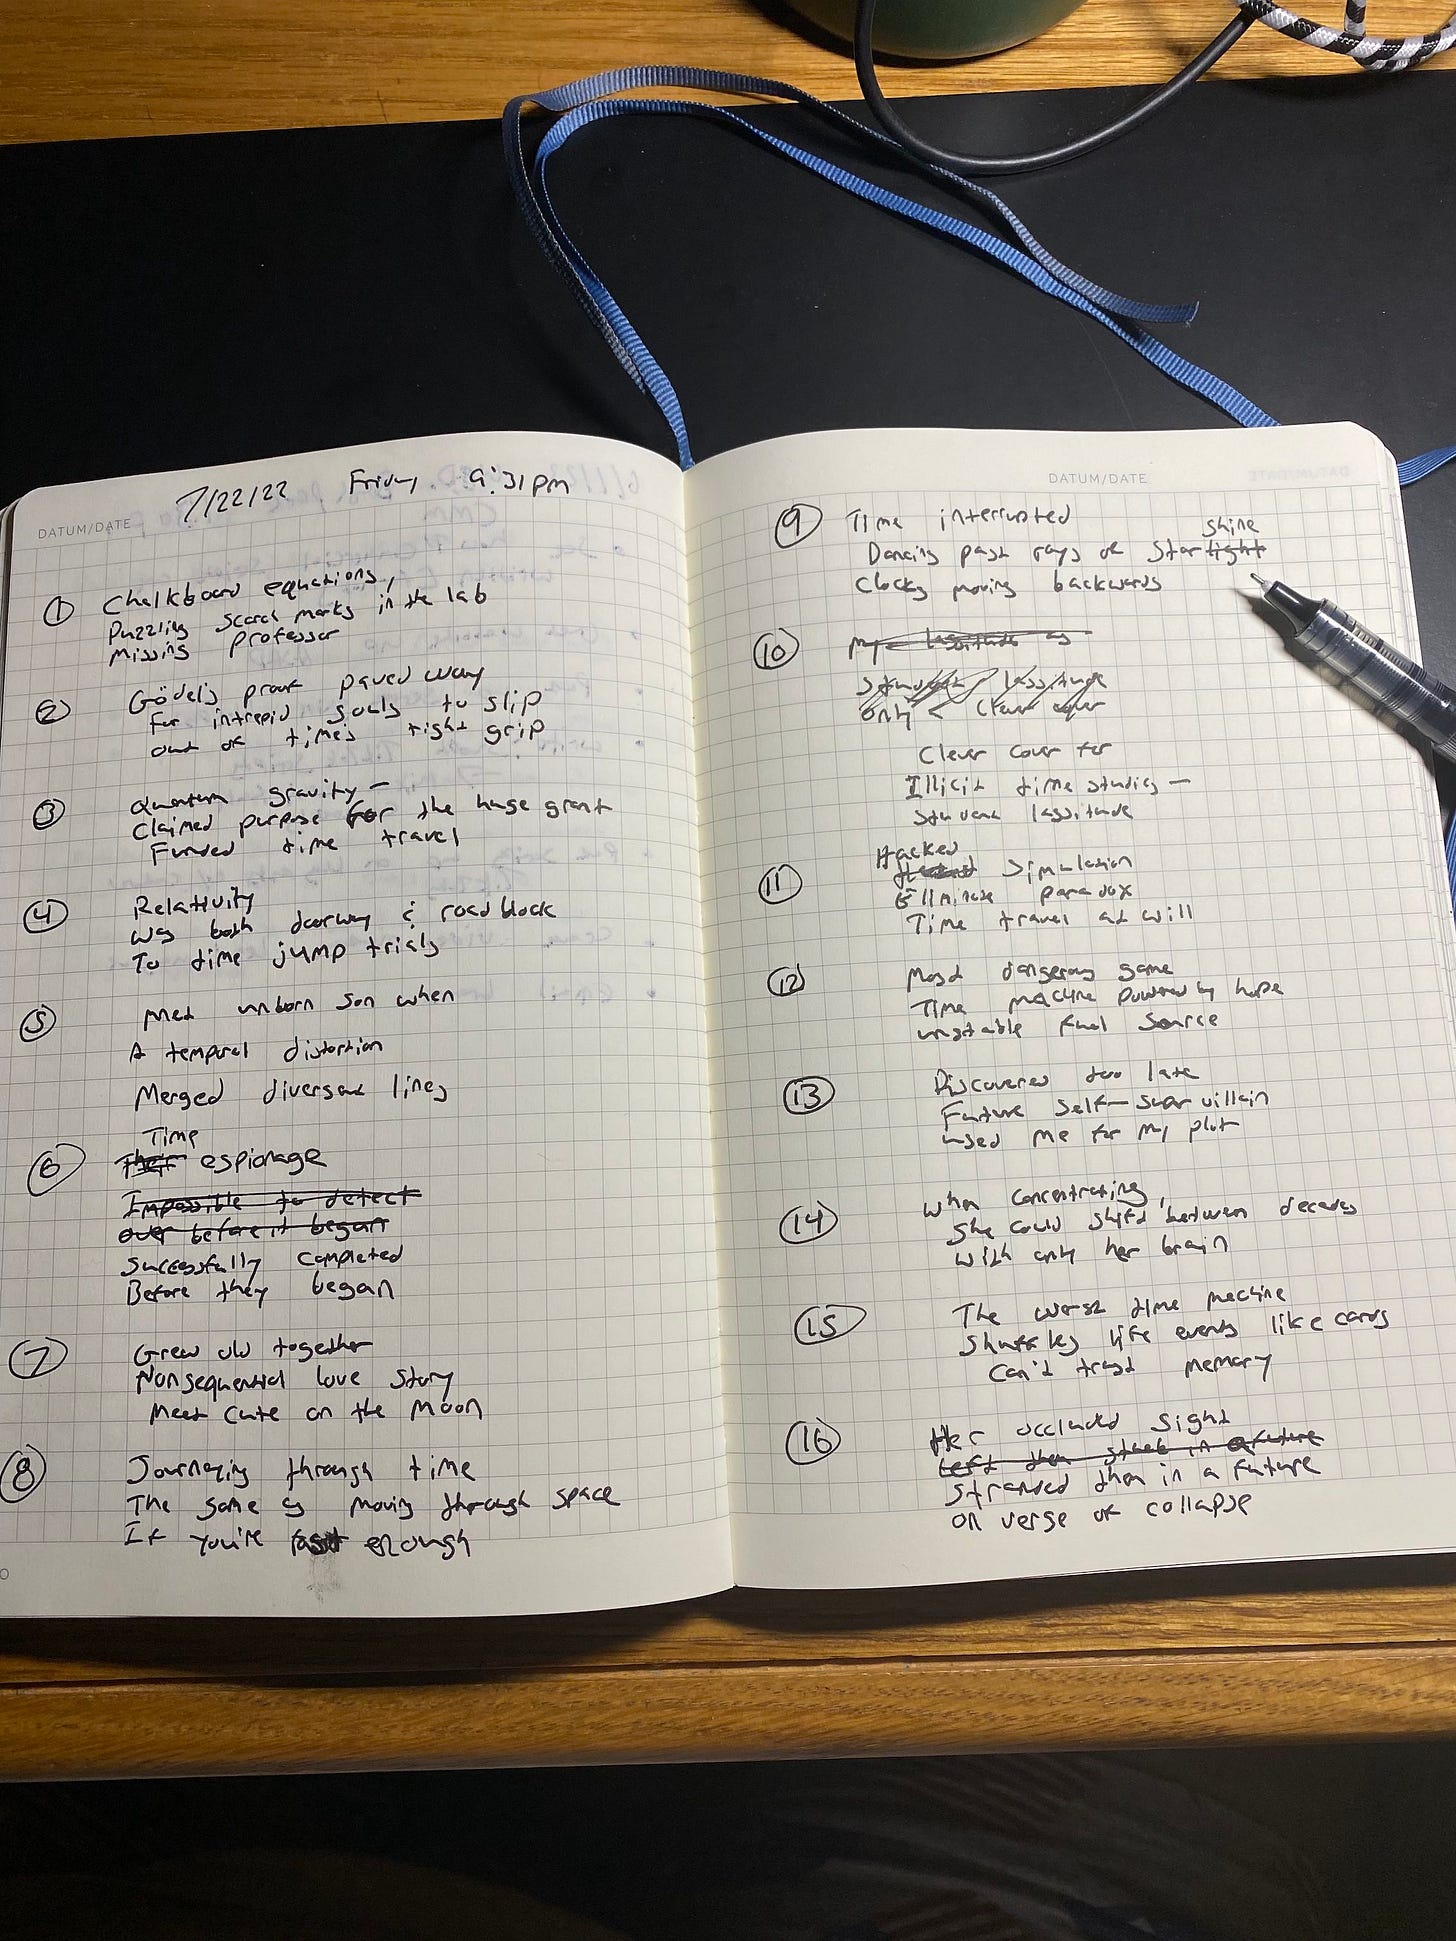 DATUM/DATE
7/22/22 Friday 9:31pm
① Chalkboard equations,
Puzzling scorch marks in the lab
Missing professor
② Gödel's proof paved way
For intrepid souls to slip
out of time's tight grip
③ Quantum gravity—
Claimed purpose for the huge grant
Funded time travel
④ Relativity
Was both doorway & roadblock
To time jump trials
⑤ Met unborn son when
A temporal distortion
Merged divergent lines
Time
⑥ Their espionage
Impossible to detect
over before it began
Successfully completed
Before they began
⑦ Grew old together
Nonsequential love story
Meet cute on the moon
⑧ Journeying through time
The same as moving through space
If you're fast enough
DATUM/DATE
⑨ Time interrupted
shine
Dancing past rays of Starlight
Clocks moving backwards
⑩ My lassitude as
Student lassitude
only a clever cover
Clever cover for
Illicit time studies—
Student lassitude
Hacked
⑪ simulation
Eliminate paradox
Time travel at will
⑫ Most dangerous game
Time machine powered by hope
unstable fuel source
⑬ Discovered too late
Future self—super villain
used me for my plot
⑭ When concentrating,
She could shift between decades
With only her brain
⑮ The worst time machine
Shuffles life events like cards
Can't trust memory
⑯ Her occluded sight
Left them stuck in a future
Stranded them in a future
on verge of collapse